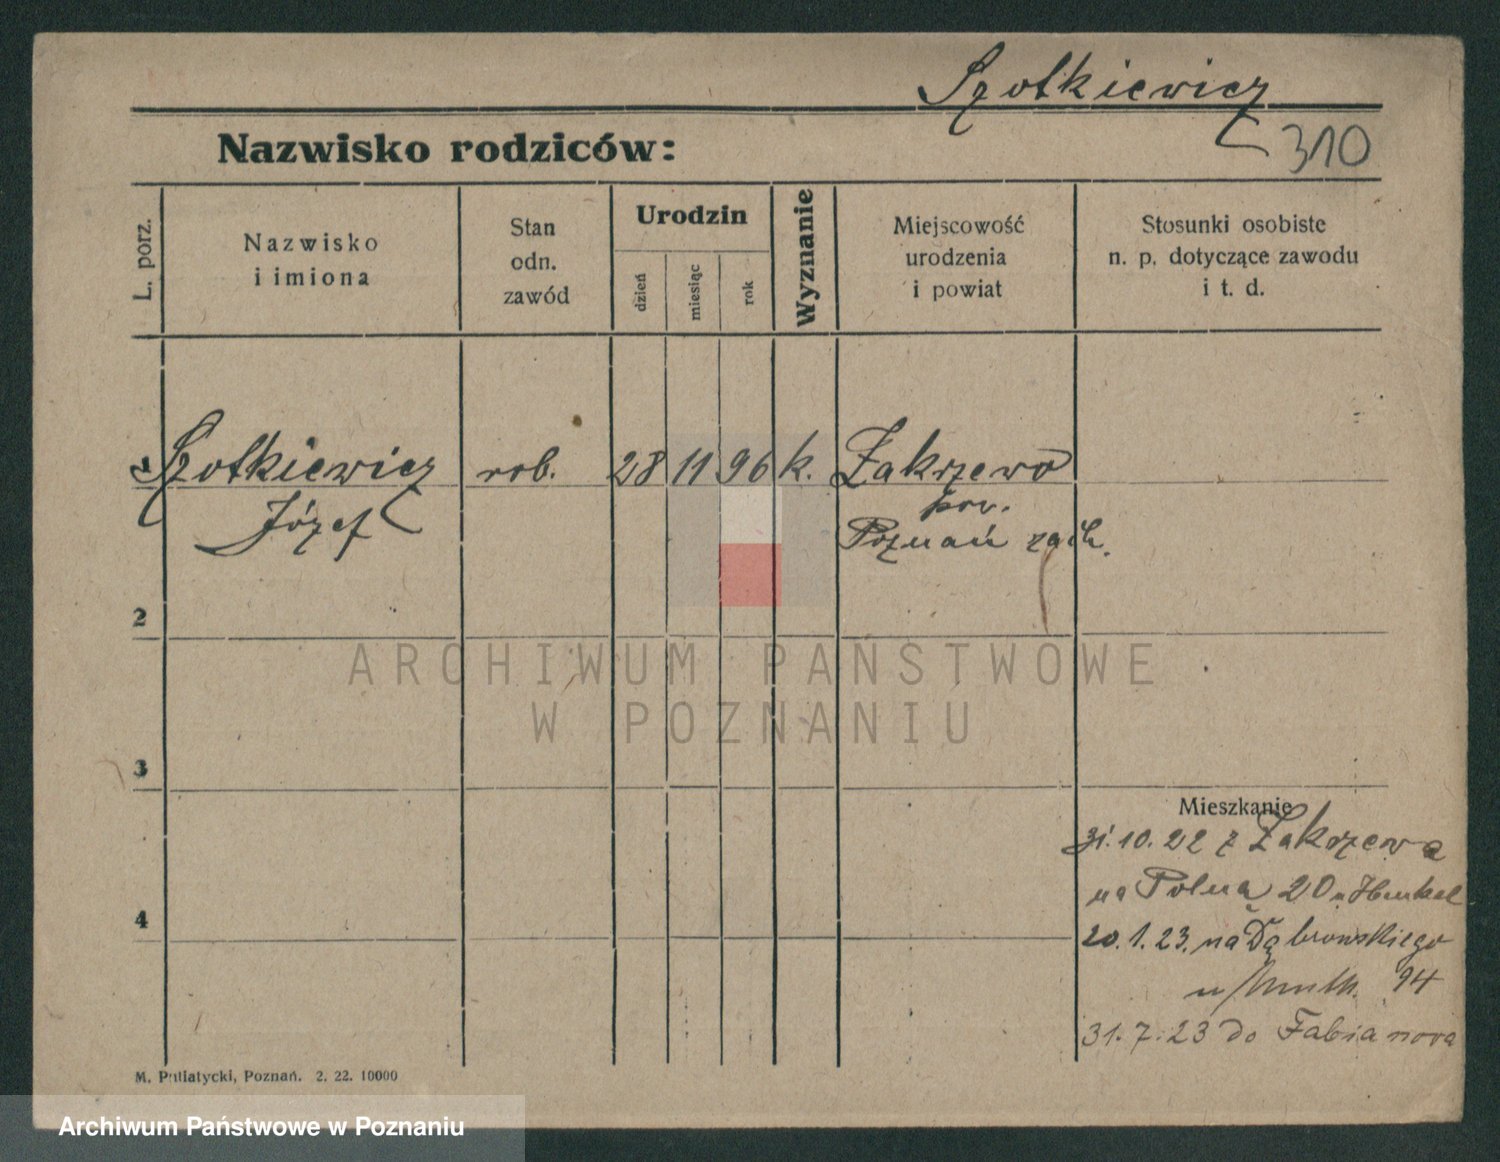 Szotkiewicz
310
Nazwisko rodziców:
L. porz.
Nazwisko
i imiona
Stan
odn.
zawód
Urodzin
dzień
miesiąc
rok
Wyznanie
Miejscowość
urodzenia
i powiat
Stosunki osobiste
n. p. dotyczące zawodu
i t. d.
1 Szotkiewicz rob. 28 11 96 k. Zakrzewo
Józef pow.
Poznań zach.
2
ARCHIWUM PAŃSTWOWE
W POZNANIU
3
Mieszkanie
31.10.22 z Zakrzewa
na Polną 20 u Henkel
4
20.1.23. na Dąbrowskiego
u 94
31.7.23 do Fabianowa
M. Putiatycki, Poznań. 2. 22. 10000
Archiwum Państwowe w Poznaniu